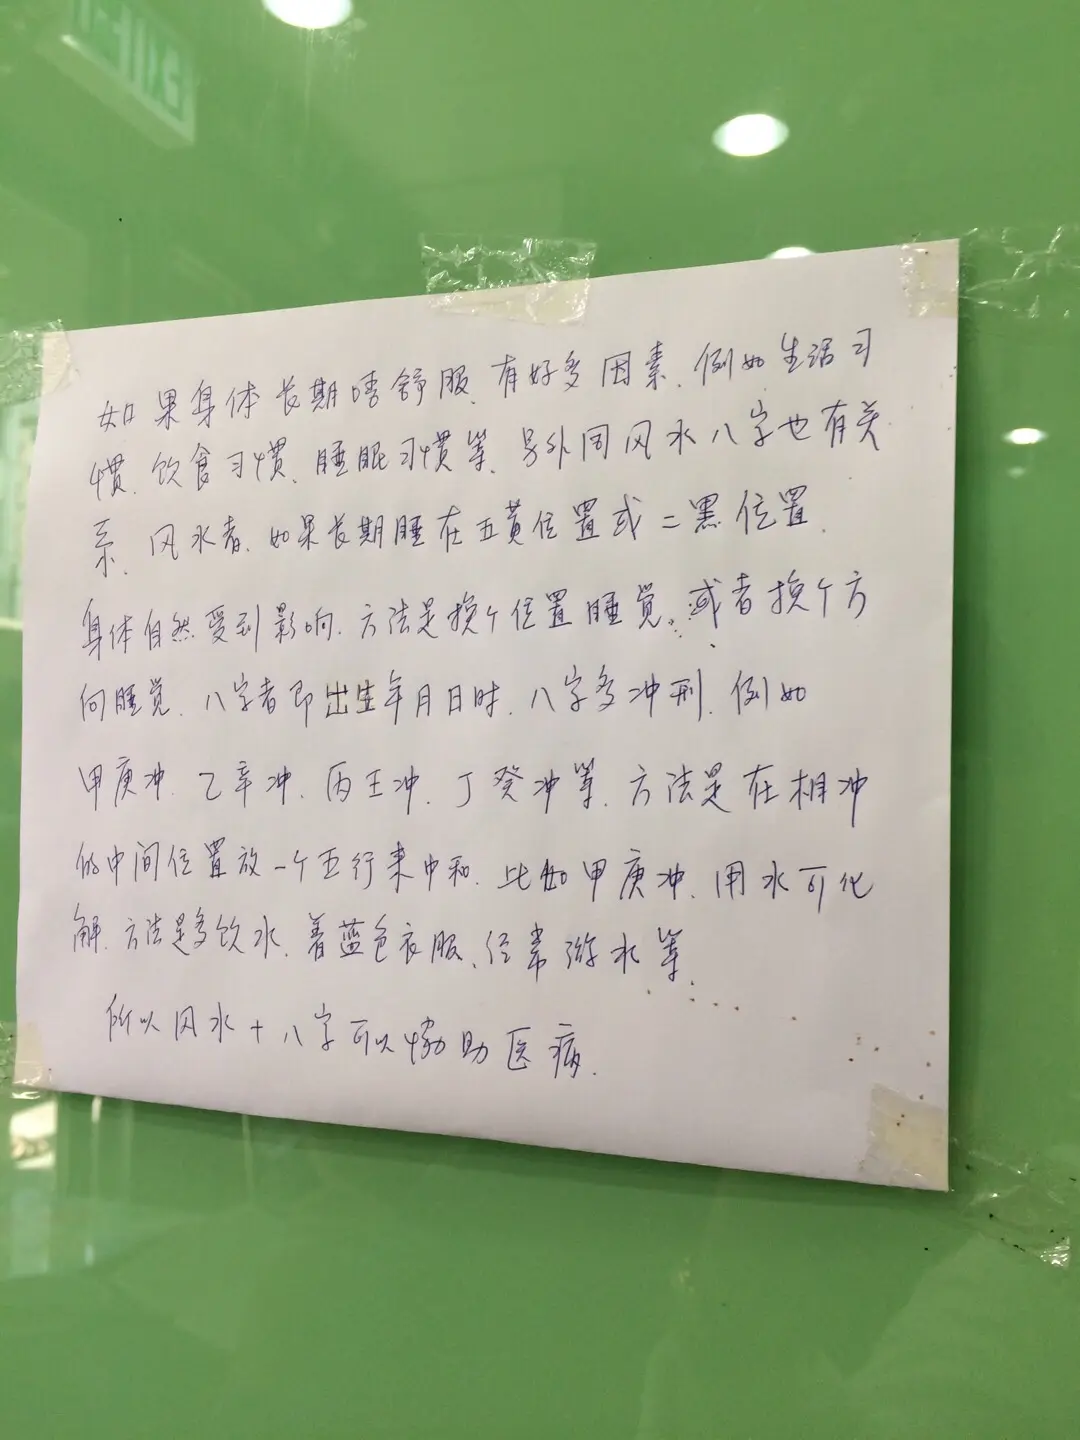 如果身体长期唔舒服、有好多因素、例如生活习
惯、饮食习惯、睡眠习惯等、另外同风水八字也有关
系、风水者、如果长期睡在五黄位置或二黑位置、
身体自然受到影响、方法是换个位置睡觉、或者换个方
向睡觉、八字者即出生年月日时、八字多冲刑、例如
甲庚冲、乙辛冲、丙壬冲、丁癸冲等、方法是在相冲
的中间位置放一个五行来中和、比如甲庚冲、用水可化
解、方法是多饮水、着蓝色衣服、经常游水等、
所以风水+八字可以协助医病.